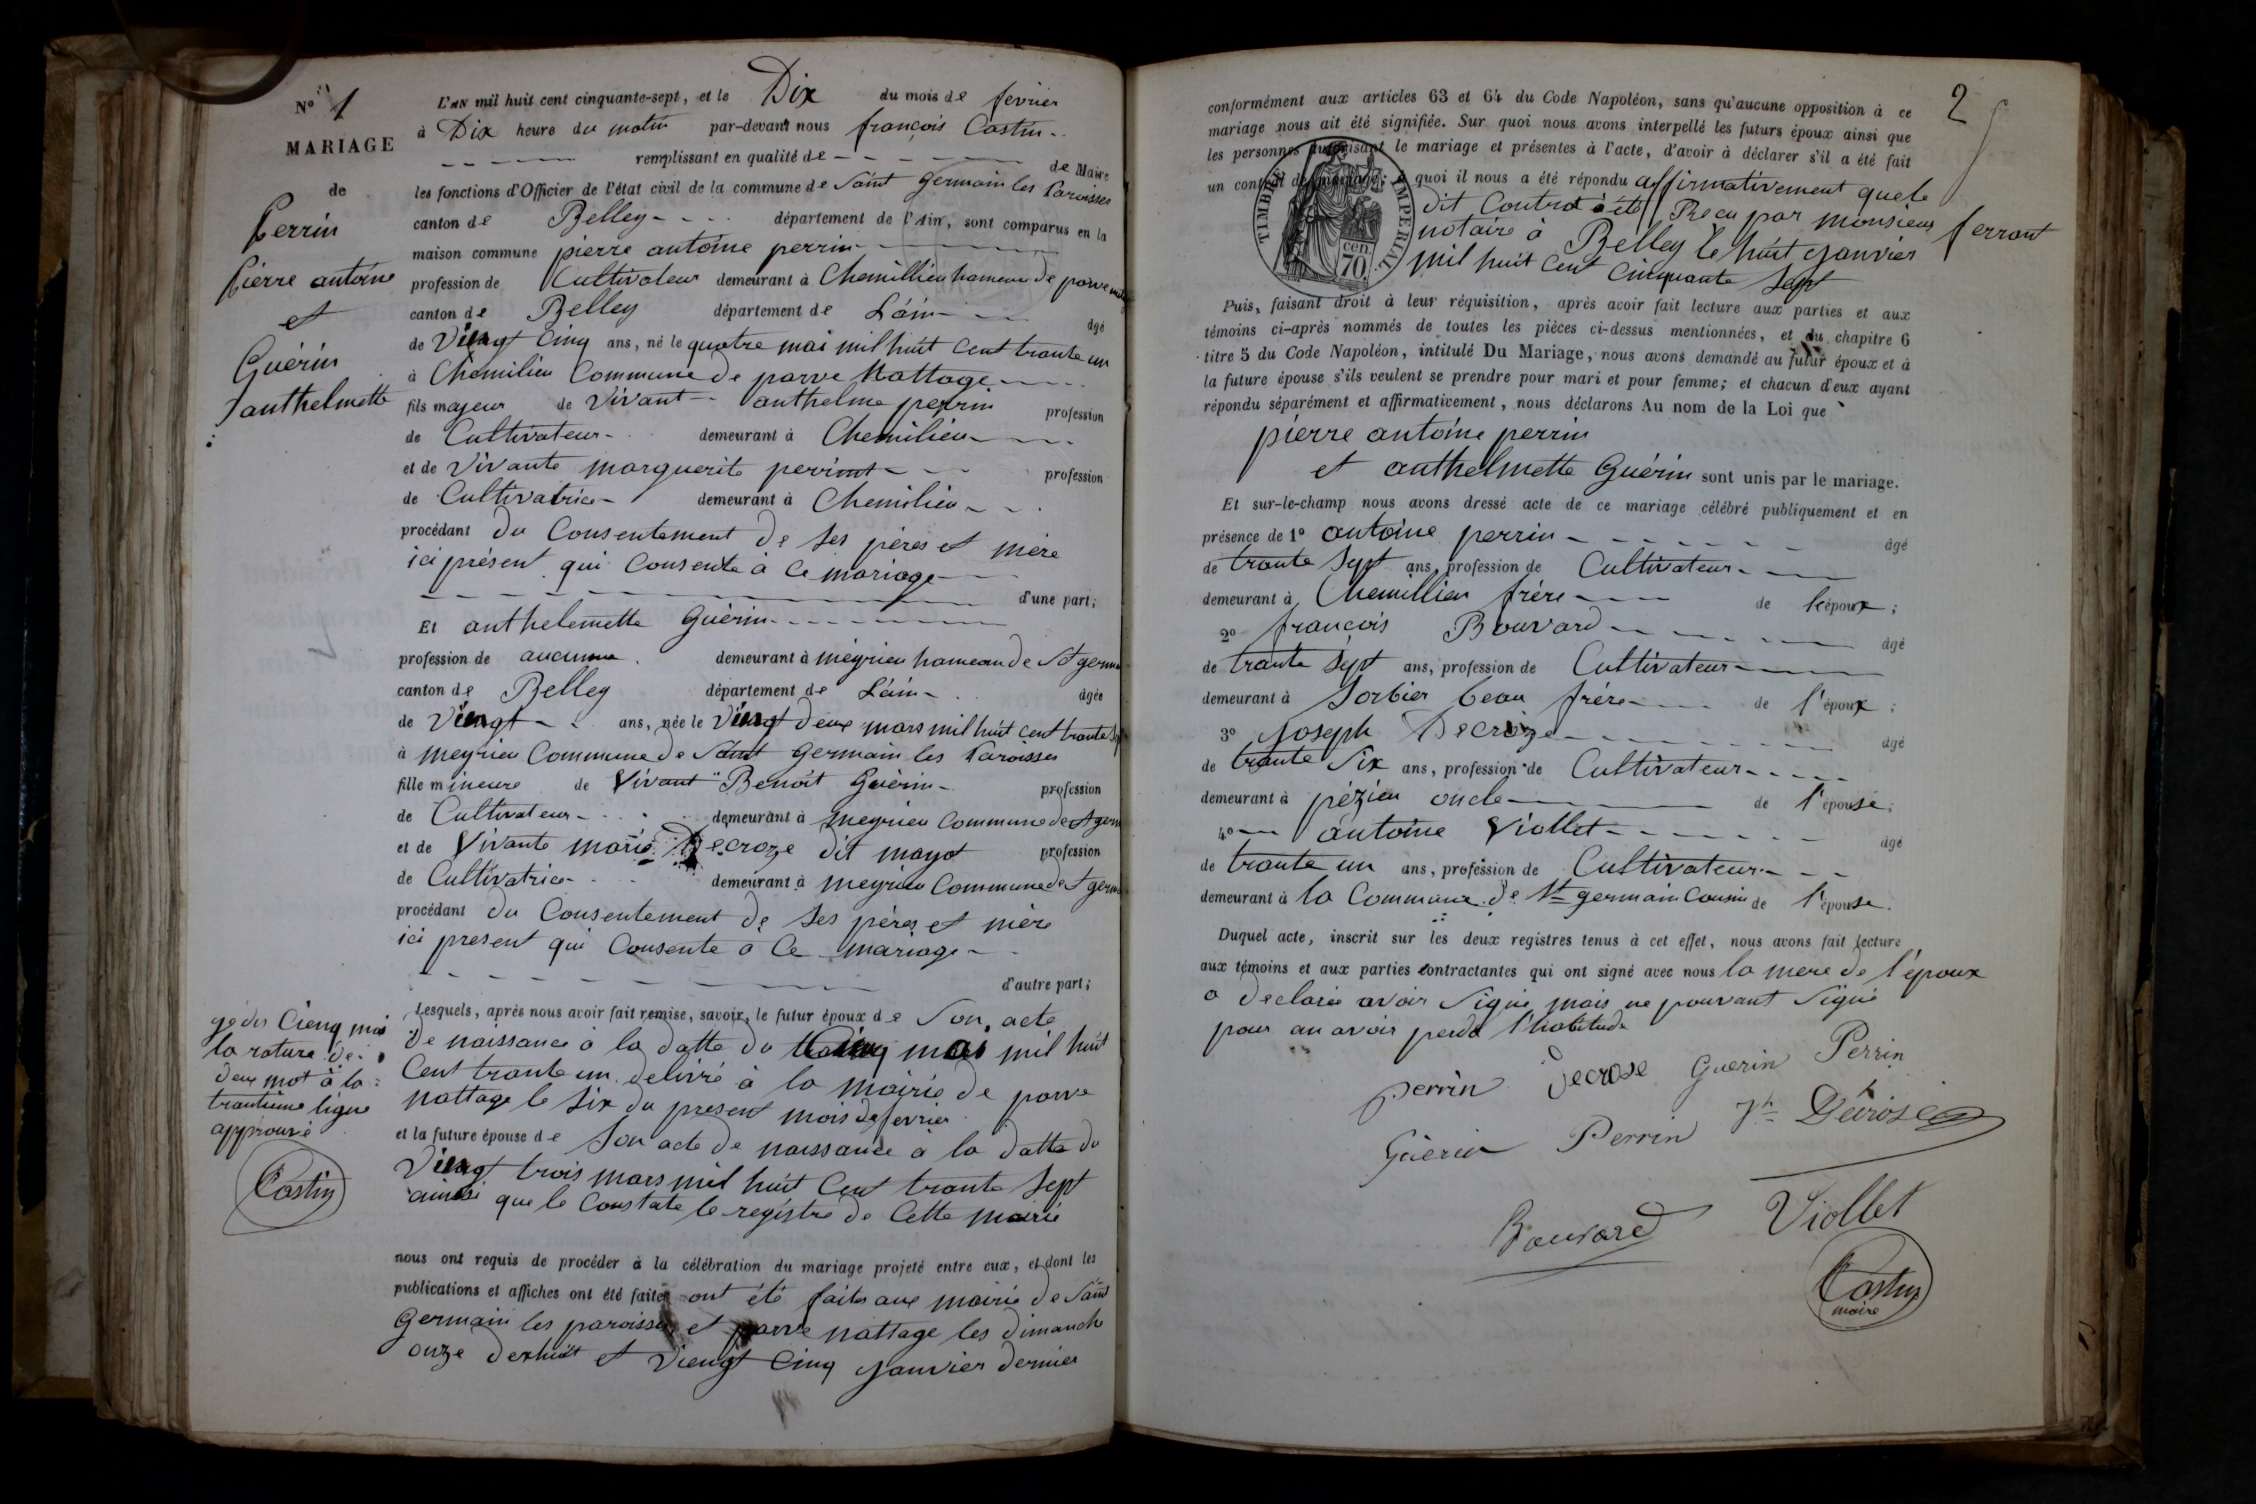 N° 1
MARIAGE
de
Perrin
Pierre antoine
et
Guérin
anthelmette
L'AN mil huit cent cinquante-sept, et le Dix du mois de fevrier
à Dix heure du matin par-devant nous françois Castin
remplissant en qualité de de Maire
les fonctions d'Officier de l'état civil de la commune de Saint germain les Paroisses
canton de Belley département de l'Ain, sont comparus en la
maison commune pierre antoine perrin
profession de Cultivateur demeurant à Chemillieu hameau de parve
canton de Belley département de L'ain âgé
de Viengt Cinq ans, né le quatre mai mil huit cent trante un
à Chemilieu Commune de parve Nattage
fils majeur de Vivant anthelme perrin profession
de Cultivateur demeurant à Chemilieu
et de Vivante marguerite perrin profession
de Cultivatrice demeurant à Chemilieu
procédant du Consentement de ses pères et mère
ici présent qui Consente à ce mariage
d'une part;
Et anthelemette Guérin
profession de aucunne demeurant à meyrieu hameau de St germ
canton de Belley département de L'ain âgée
de Viengt ans, née le Viengt deux mars mil huit cent trante
à meyrieu Commune de Saint germain les Paroisses
fille mineure de Vivant Benoît Guérin profession
de Cultivateur demeurant à meyrieu Commune de St germ
et de Vivante marie Decroze dit mayot profession
de Cultivatrice demeurant à meyrieu Commune de St germ
procédant du Consentement de ses pères et mère
ici present qui Consente a Ce mariage
d'autre part;
Lesquels, après nous avoir fait remise, savoir, le futur époux de Son acte
De naissance à la datte du Cinq mai mil huit
Cent trante un delivré à la mairie de parve
nattage le six du present mois de fevrier
et la future épouse de Son acte de naissance à la datte du
Viengt trois mars mil huit Cent trante sept
ainsi que le Constate le registre de Cette mairie
nous ont requis de procéder à la célébration du mariage projeté entre eux, et dont les
publications et affiches ont été faites ont été faites aux mairie de Saint
Germain les paroisses et parve nattage les dimanche
onze dexhuit et Viengt Cinq janvier dernier
Cienq mai
la rature de
deux mot à la
trantième ligne
approuvé
Castin
2
conformément aux articles 63 et 64 du Code Napoléon, sans qu'aucune opposition à ce
mariage nous ait été signifiée. Sur quoi nous avons interpellé les futurs époux ainsi que
les personnes autorisant le mariage et présentes à l'acte, d'avoir à déclarer s'il a été fait
un contrat de mariage; à quoi il nous a été répondu affirmativement que le
dit Contrat à été Recu par monsieur ferrant
notaire à Belley le huit janvier
mil huit Cent Cinquante Sept
TIMBRE IMPERIAL
70 cen.
Puis, faisant droit à leur réquisition, après avoir fait lecture aux parties et aux
témoins ci-après nommés de toutes les pièces ci-dessus mentionnées, et du chapitre 6
titre 5 du Code Napoléon, intitulé Du Mariage, nous avons demandé au futur époux et à
la future épouse s'ils veulent se prendre pour mari et pour femme; et chacun d'eux ayant
répondu séparément et affirmativement, nous déclarons Au nom de la Loi que
pierre antoine perrin
et anthelmette Guérin sont unis par le mariage.
Et sur-le-champ nous avons dressé acte de ce mariage célébré publiquement et en
présence de 1° antoine perrin âgé
de trante Sept ans, profession de Cultivateur
demeurant à Chemillieu frère de l'époux;
2° françois Bouvard âgé
de trante Sept ans, profession de Cultivateur
demeurant à Sorbier beau frère de l'époux;
3° Joseph Decroze âgé
de trante Six ans, profession de Cultivateur
demeurant à pézieu oncle de l'épouse;
4° antoine Viollet âgé
de trante un ans, profession de Cultivateur
demeurant à la Commune de St germain Cousin de l'épouse.
Duquel acte, inscrit sur les deux registres tenus à cet effet, nous avons fait lecture
aux témoins et aux parties contractantes qui ont signé avec nous la mere de l'époux
a declarée avoir Signé mais ne pouvant Signé
pour an avoir perdu l'habitude
Perrin Decrose Guerin Perrin
Guérin Perrin Jh Décrose
Bouvard Viollet
Castin
maire